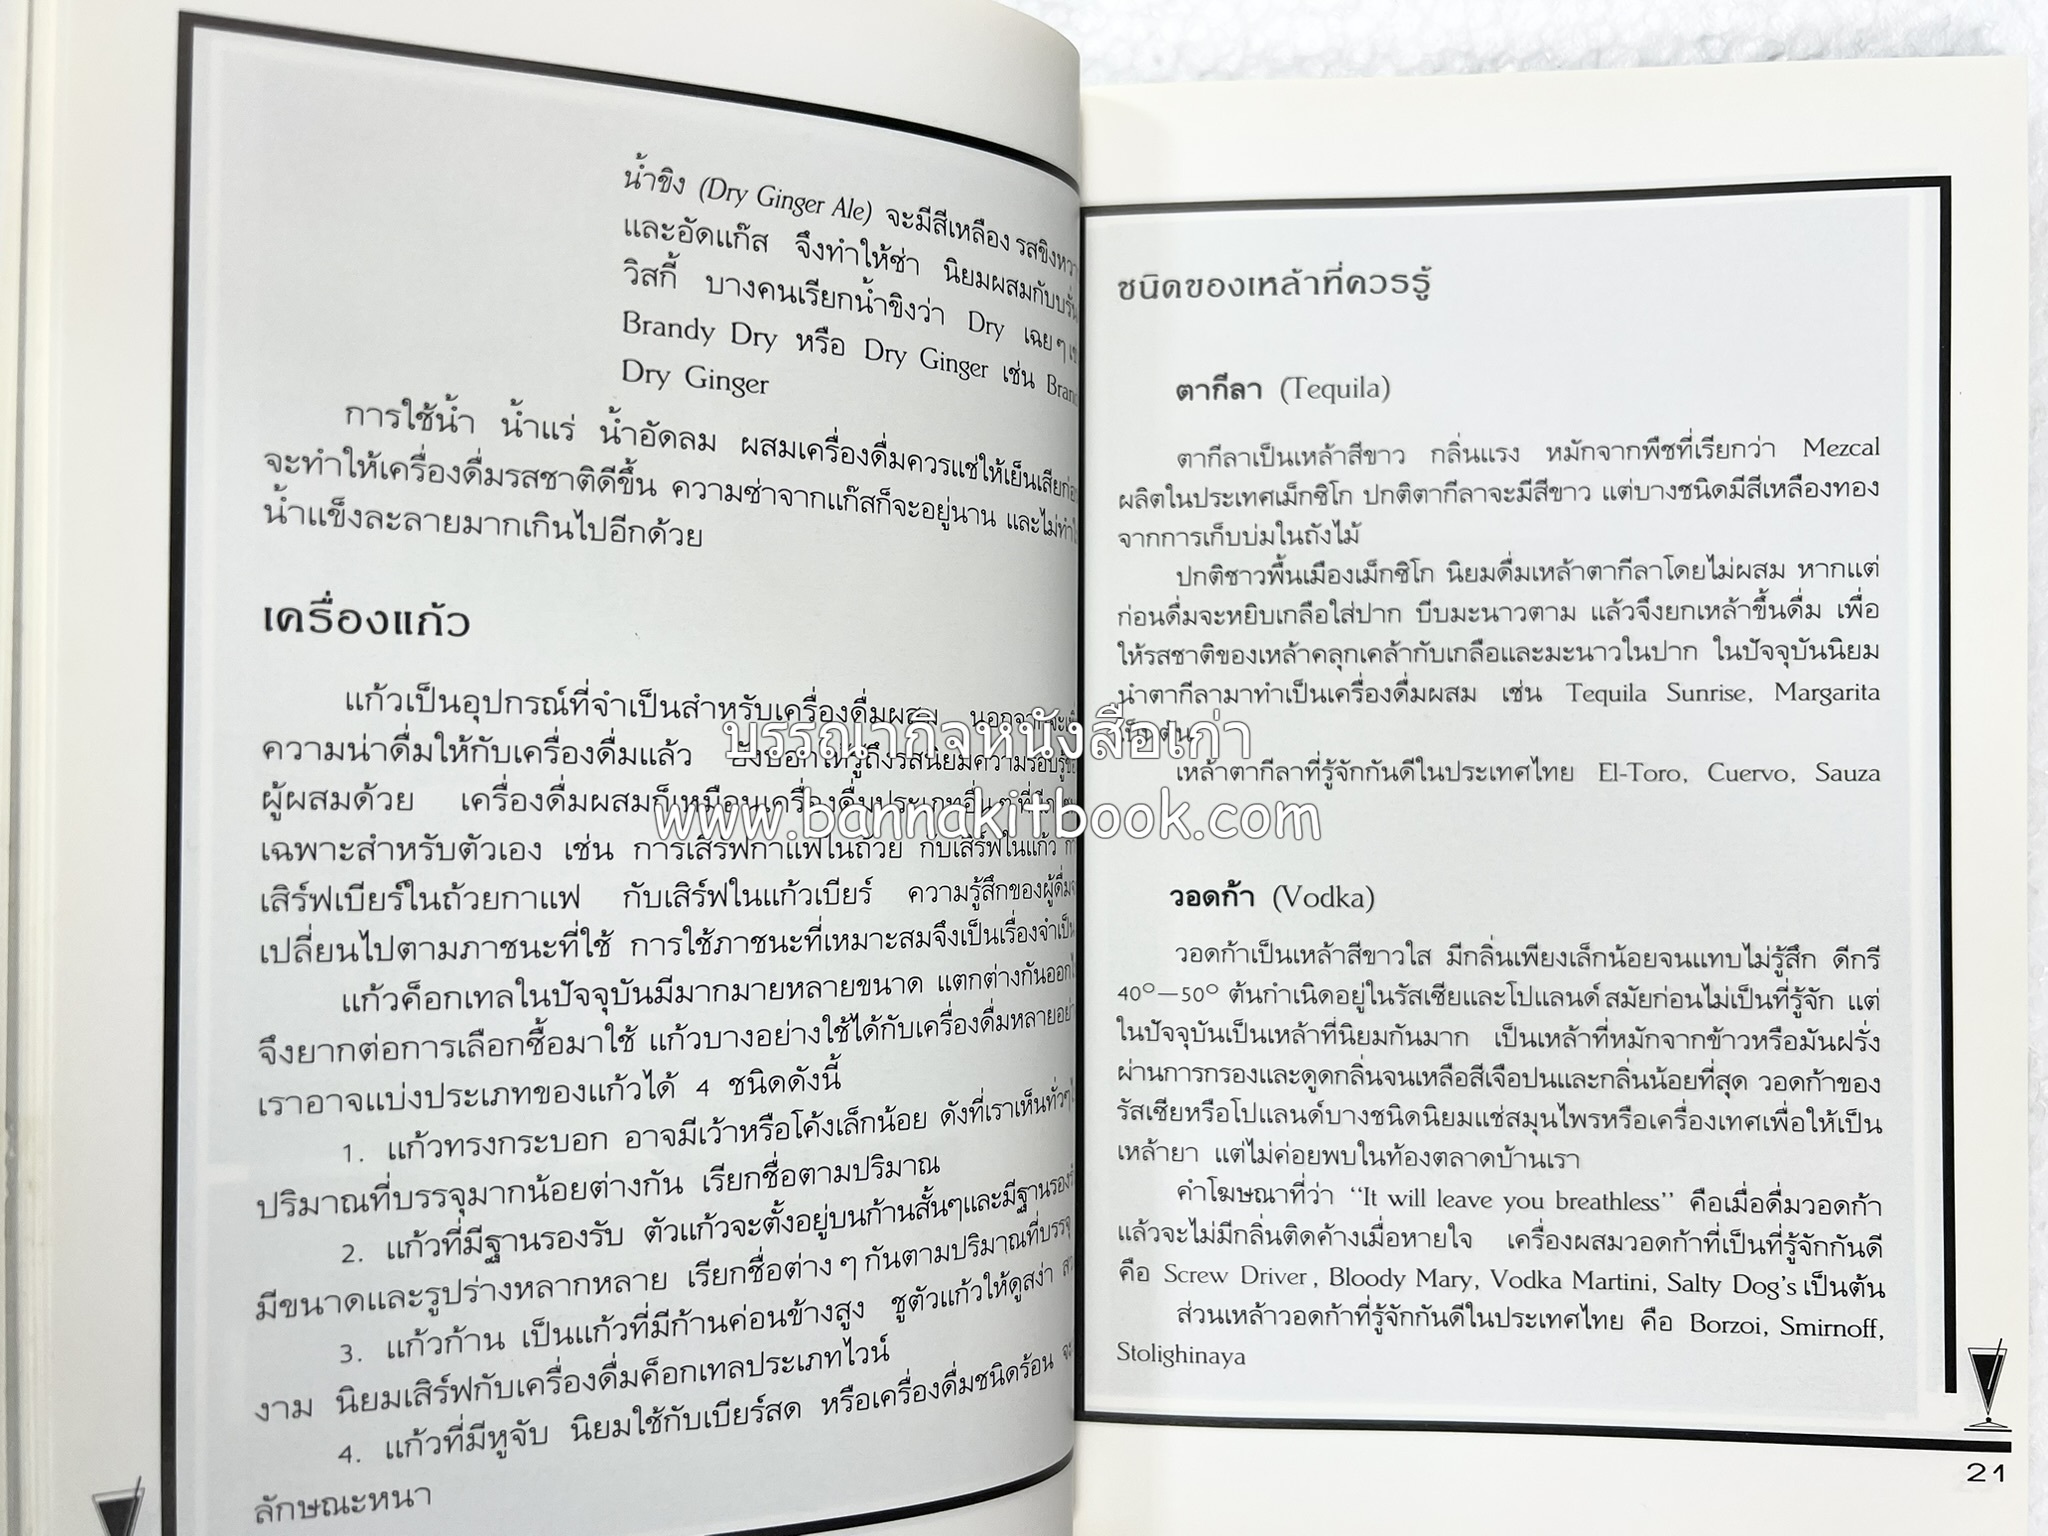 น้ำขิง (Dry Ginger Ale) จะมีสีเหลือง รสขิงหวา
และอัดแก๊ส จึงทำให้ซ่า นิยมผสมกับบรั่น
วิสกี้ บางคนเรียกน้ำขิงว่า Dry เฉยๆ เช
Brandy Dry หรือ Dry Ginger เช่น Brand
Dry Ginger
การใช้น้ำ น้ำแร่ น้ำอัดลม ผสมเครื่องดื่มควรแช่ให้เย็นเสียก่อ
จะทำให้เครื่องดื่มรสชาติดีขึ้น ความซ่าจากแก๊สก็จะอยู่นาน และไม่ทำใ
น้ำแข็งละลายมากเกินไปอีกด้วย
เครื่องแก้ว
แก้วเป็นอุปกรณ์ที่จำเป็นสำหรับเครื่องดื่มผสม
ความน่าดื่มให้กับเครื่องดื่มแล้ว
ผู้ผสมด้วย เครื่องดื่มผสมก็เหมือนเครื่องดื่มประเภทอื่นๆ
เฉพาะสำหรับตัวเอง เช่น การเสิร์ฟกาแฟในถ้วย กับเสิร์ฟในแก้ว
เสิร์ฟเบียร์ในถ้วยกาแฟ กับเสิร์ฟในแก้วเบียร์ ความรู้สึกของผู้ดื่มจ
เปลี่ยนไปตามภาชนะที่ใช้ การใช้ภาชนะที่เหมาะสมจึงเป็นเรื่องจำเป็น
แก้วค็อกเทลในปัจจุบันมีมากมายหลายขนาด แตกต่างกันออกไ
จึงยากต่อการเลือกซื้อมาใช้ แก้วบางอย่างใช้ได้กับเครื่องดื่มหลายอย่า
เราอาจแบ่งประเภทของแก้วได้ 4 ชนิดดังนี้
1. แก้วทรงกระบอก อาจมีเว้าหรือโค้งเล็กน้อย ดังที่เราเห็นทั่วๆไ
ปริมาณที่บรรจุมากน้อยต่างกัน เรียกชื่อตามปริมาณ
2. แก้วที่มีฐานรองรับ ตัวแก้วจะตั้งอยู่บนก้านสั้นๆและมีฐานรองรั
มีขนาดและรูปร่างหลากหลาย เรียกชื่อต่างๆ กันตามปริมาณที่บรรจุ
3. แก้วก้าน เป็นแก้วที่มีก้านค่อนข้างสูง ชูตัวแก้วให้ดูสง่า สว
งาม นิยมเสิร์ฟกับเครื่องดื่มค็อกเทลประเภทไวน์
4. แก้วที่มีหูจับ นิยมใช้กับเบียร์สด หรือเครื่องดื่มชนิดร้อน จะ
ลักษณะหนา
ชนิดของเหล้าที่ควรรู้
ตากีลา (Tequila)
ตากีลาเป็นเหล้าสีขาว กลิ่นแรง หมักจากพืชที่เรียกว่า Mezcal
ผลิตในประเทศเม็กซิโก ปกติตากีลาจะมีสีขาว แต่บางชนิดมีสีเหลืองทอง
จากการเก็บบ่มในถังไม้
ปกติชาวพื้นเมืองเม็กซิโก นิยมดื่มเหล้าตากีลาโดยไม่ผสม หากแต่
ก่อนดื่มจะหยิบเกลือใส่ปาก บีบมะนาวตาม แล้วจึงยกเหล้าขึ้นดื่ม เพื่อ
ให้รสชาติของเหล้าคลุกเคล้ากับเกลือและมะนาวในปาก ในปัจจุบันนิยม
นำตากีลามาทำเป็นเครื่องดื่มผสม เช่น Tequila Sunrise, Margarita
เป็นต้น
เหล้าตากีลาที่รู้จักกันดีในประเทศไทย El-Toro, Cuervo, Sauza
วอดก้า (Vodka)
วอดก้าเป็นเหล้าสีขาวใส มีกลิ่นเพียงเล็กน้อยจนแทบไม่รู้สึก ดีกรี
40°–50° ต้นกำเนิดอยู่ในรัสเซียและโปแลนด์ สมัยก่อนไม่เป็นที่รู้จัก แต่
ในปัจจุบันเป็นเหล้าที่นิยมกันมาก เป็นเหล้าที่หมักจากข้าวหรือมันฝรั่ง
ผ่านการกรองและดูดกลิ่นจนเหลือสีเจือปนและกลิ่นน้อยที่สุด วอดก้าของ
รัสเซียหรือโปแลนด์บางชนิดนิยมแช่สมุนไพรหรือเครื่องเทศเพื่อให้เป็น
เหล้ายา แต่ไม่ค่อยพบในท้องตลาดบ้านเรา
คำโฆษณาที่ว่า “It will leave you breathless” คือเมื่อดื่มวอดก้า
แล้วจะไม่มีกลิ่นติดค้างเมื่อหายใจ เครื่องผสมวอดก้าที่เป็นที่รู้จักกันดี
คือ Screw Driver, Bloody Mary, Vodka Martini, Salty Dog’s เป็นต้น
ส่วนเหล้าวอดก้าที่รู้จักกันดีในประเทศไทย คือ Borzoi, Smirnoff,
Stolighinaya
21
บรรณากิจหนังสือเก่า
www.bannakitbook.com